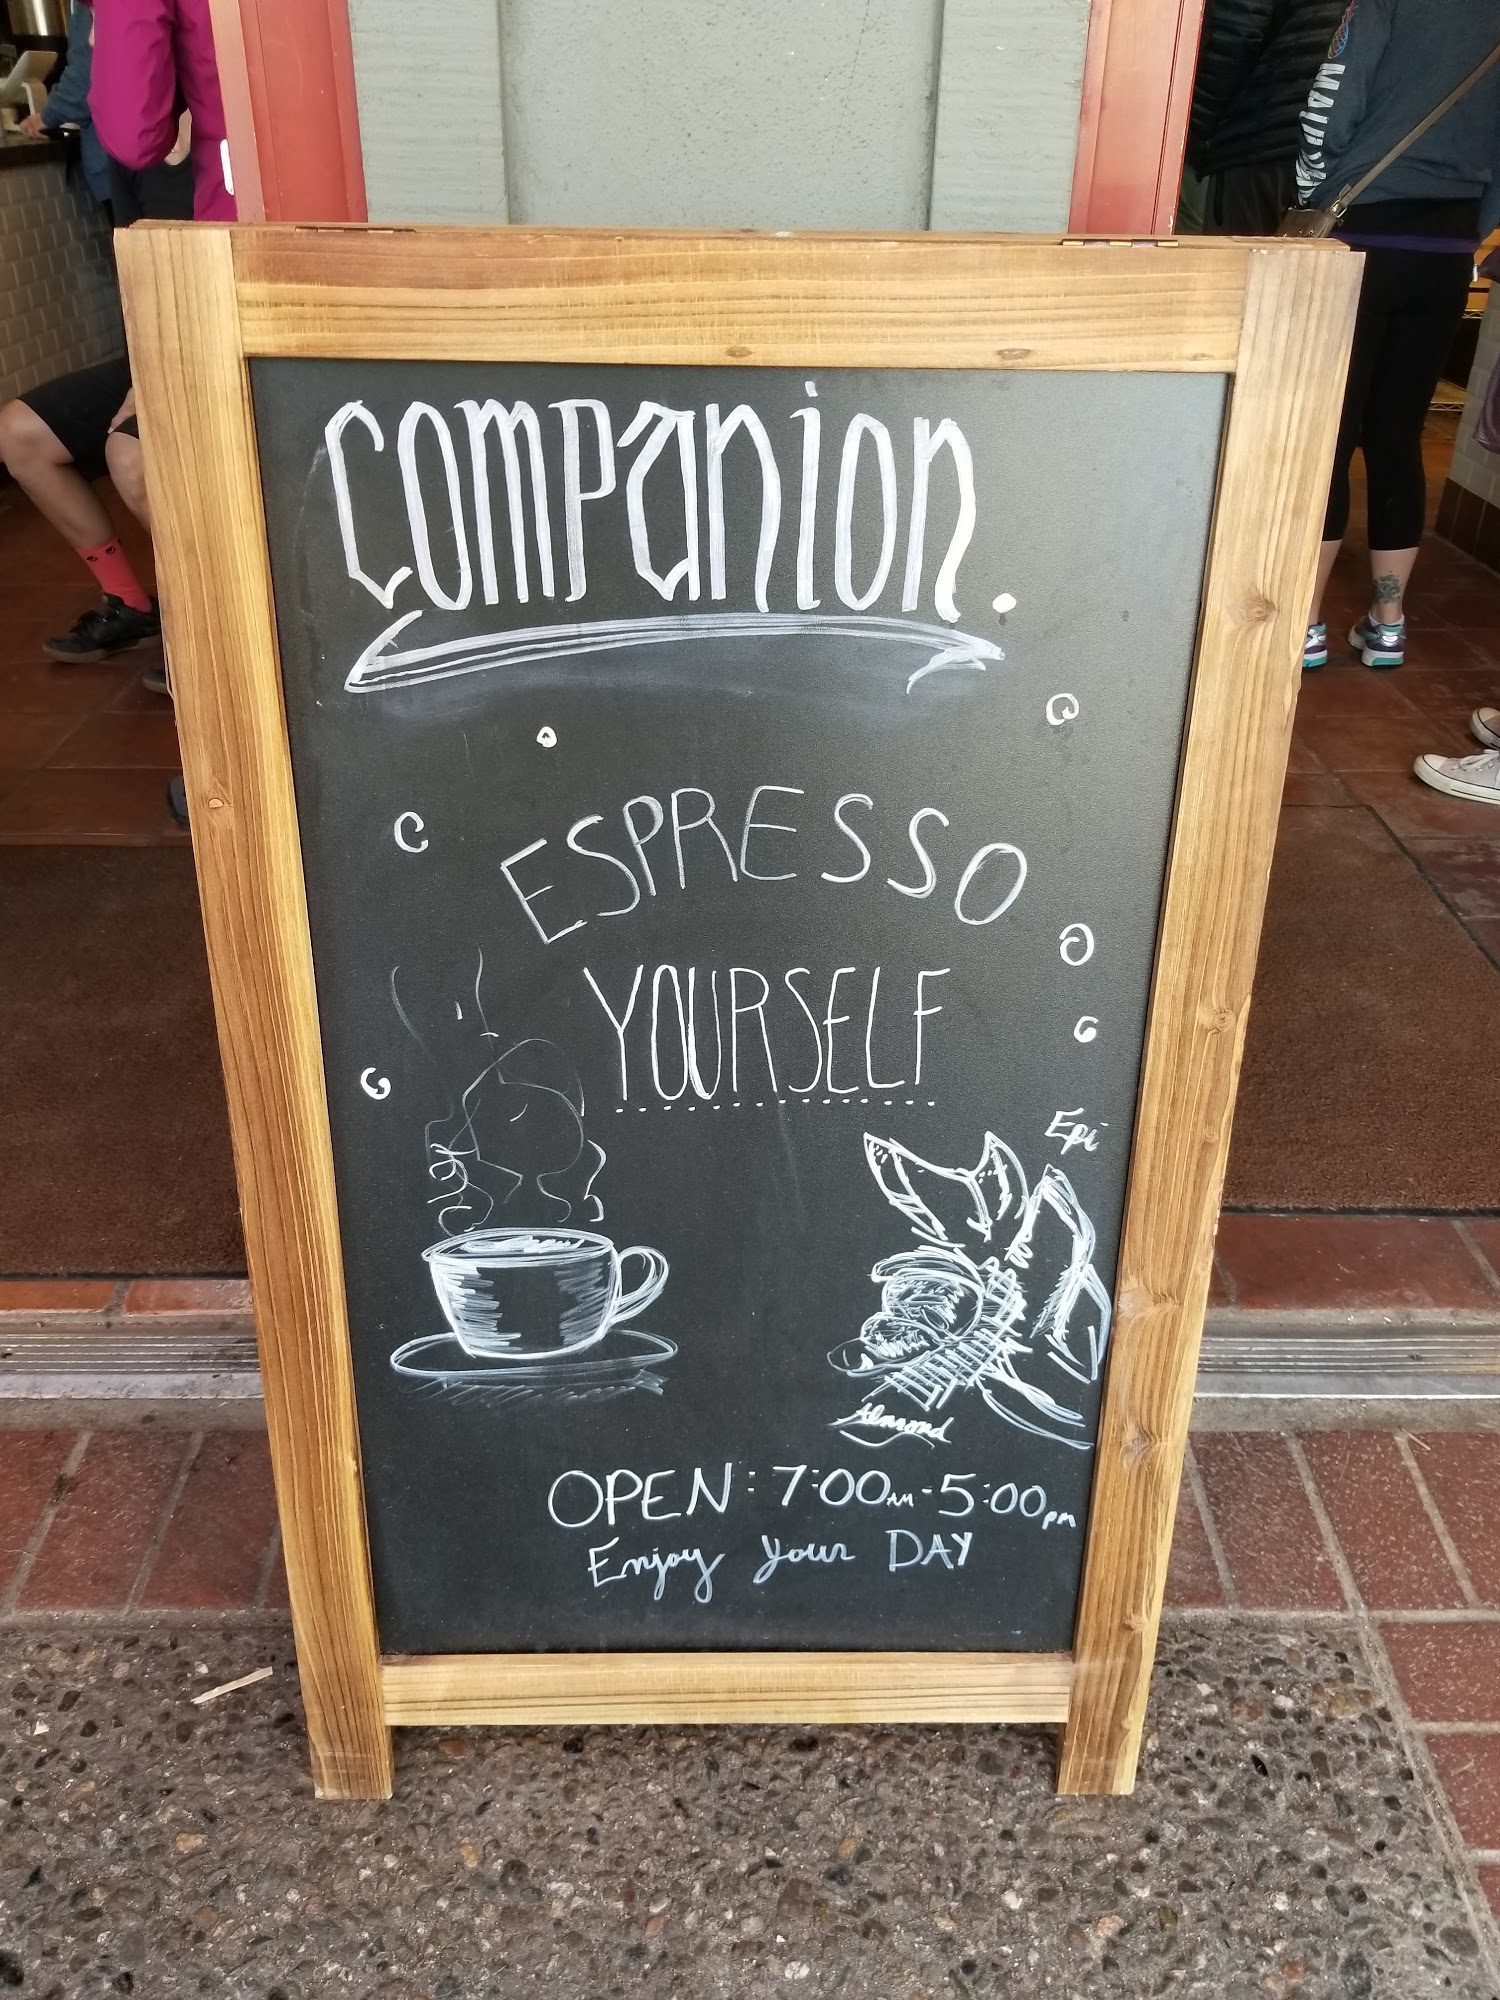 companion.
ESPRESSO
YOURSELF
Epi
Almond
OPEN: 7:00AM-5:00PM
Enjoy your DAY